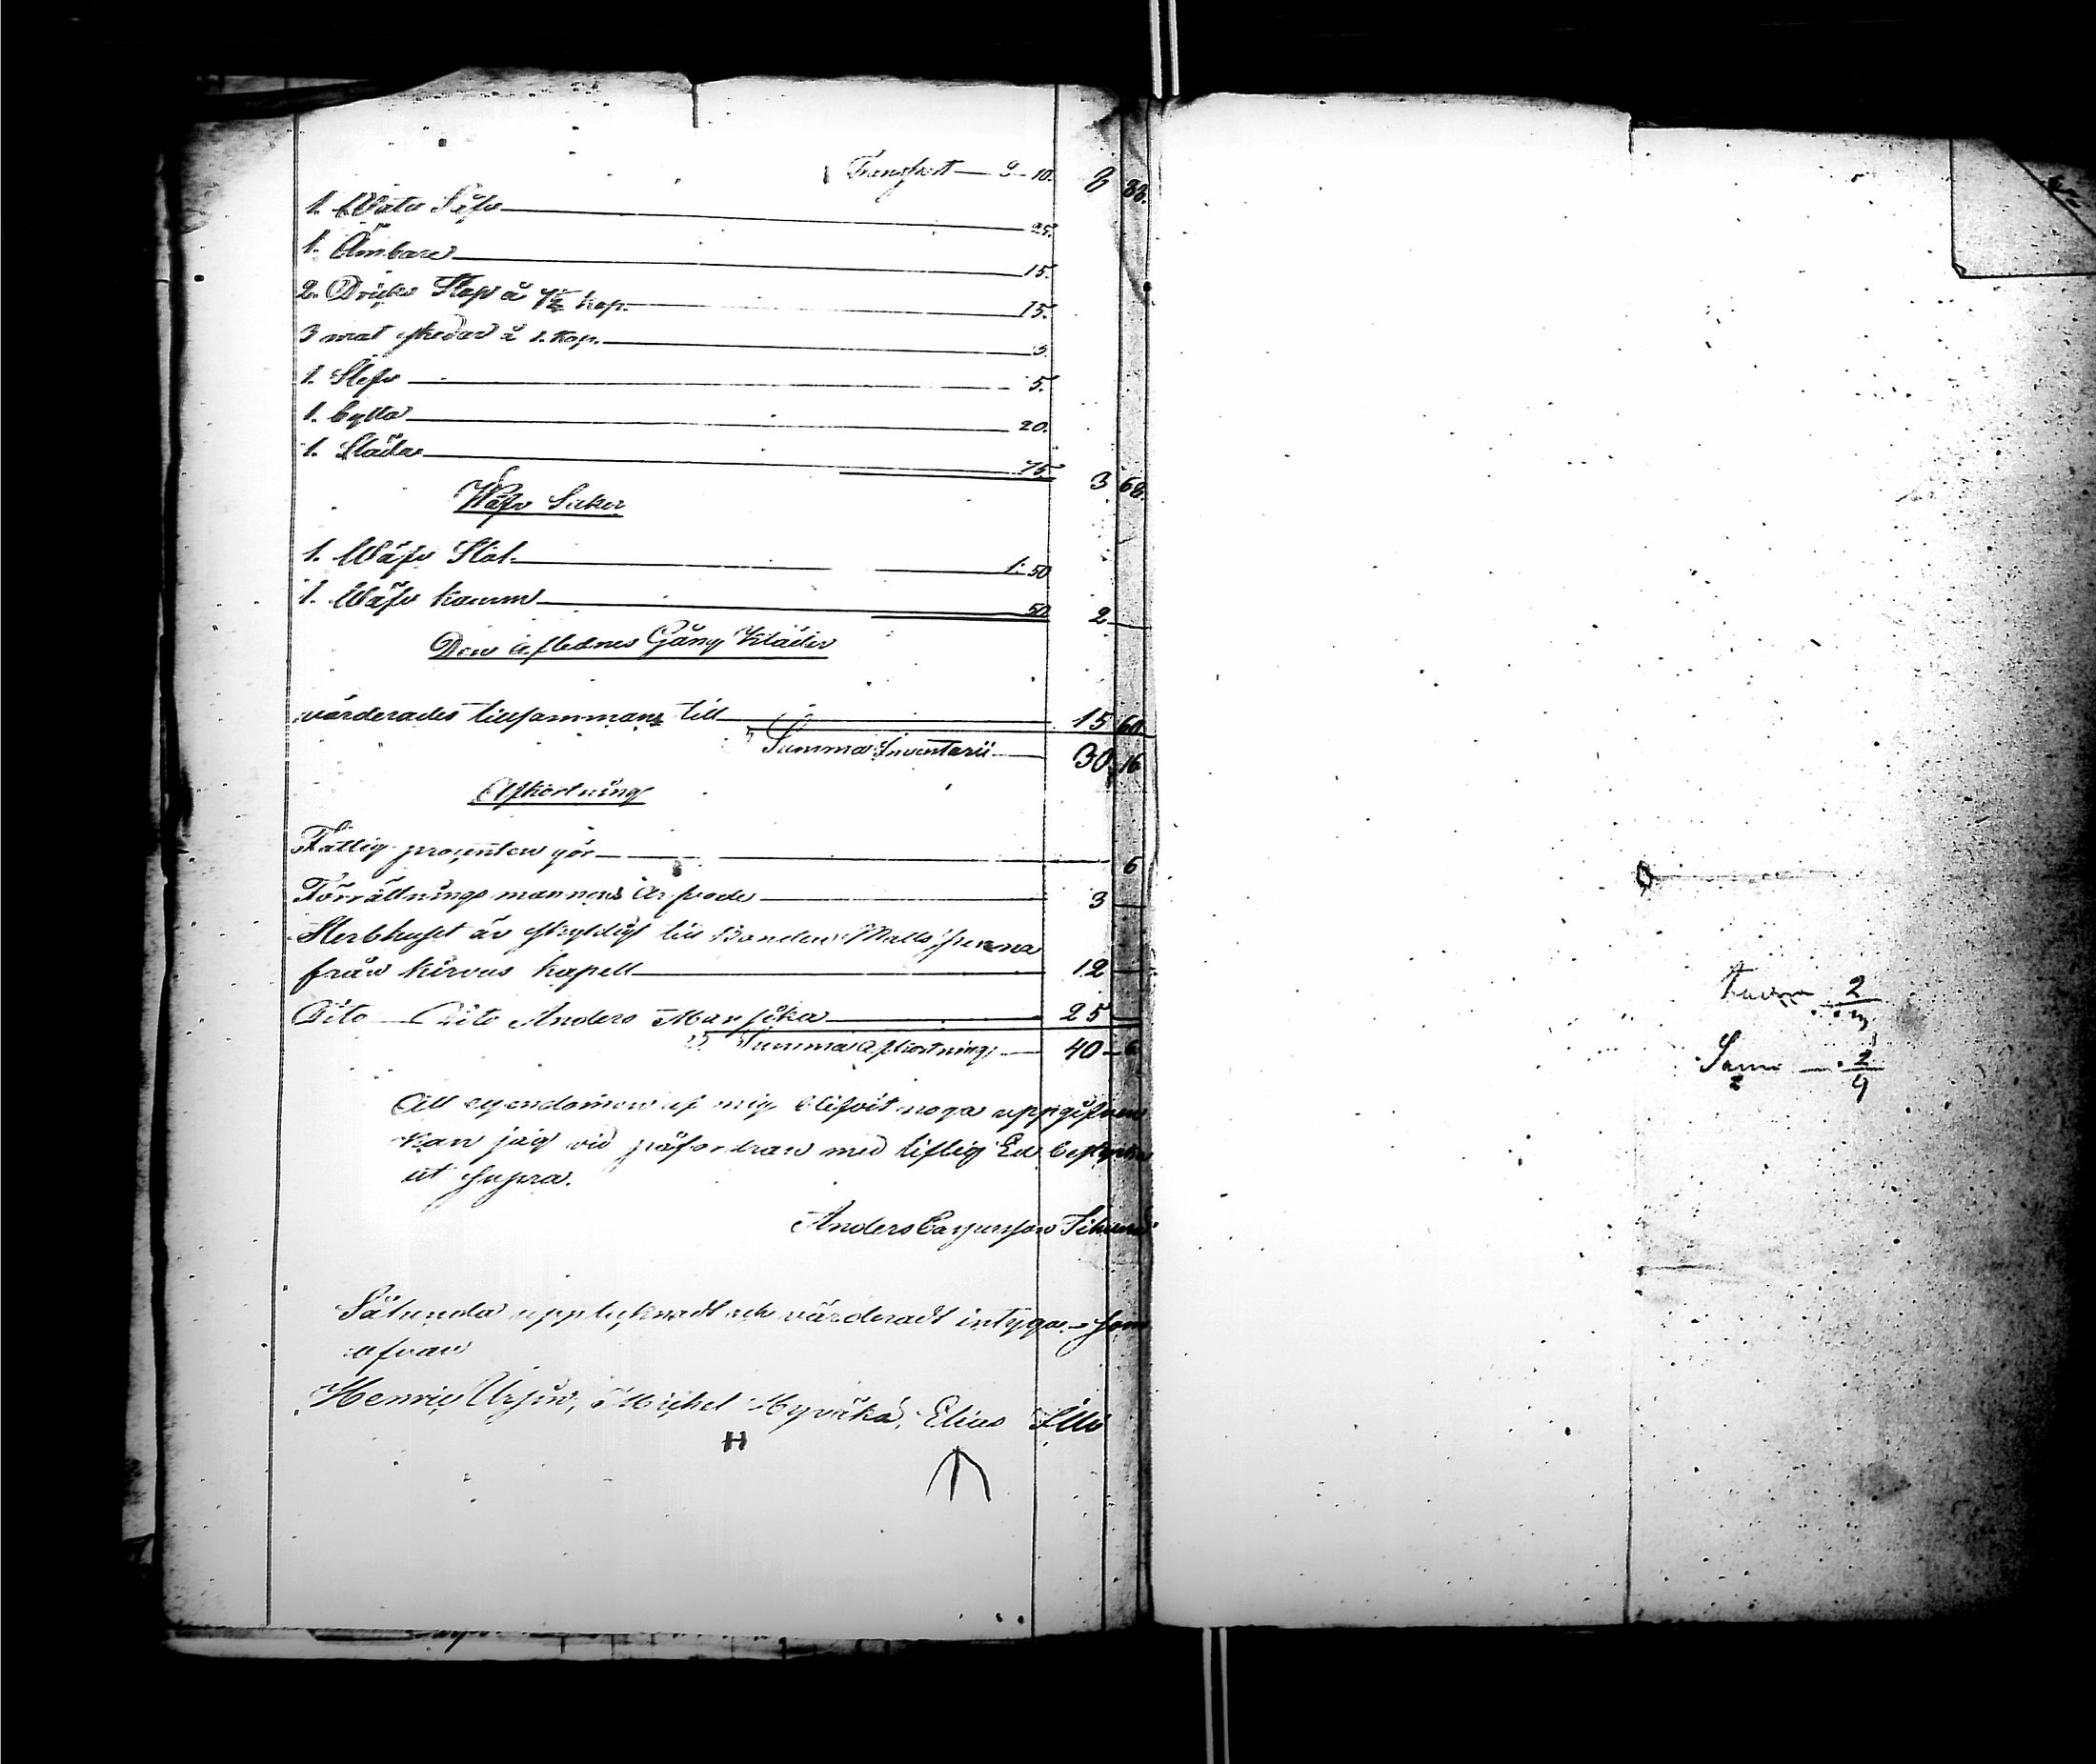 Transport — 2 – 10. 8 88.
1. Watu Såfu 25.
1. Ämbare 15.
2. Dricks Stop à 7½ kop. 15.
3 mat skedar à 1. kop. 3.
1. Slefv 5.
1. bytta 20.
1. Släda 75. 3 68.
Wäfv Saker
1. Wäfv Stol 1. 50
1. Wäfv kamm 50 2 —
Den Aflednes Gång Kläder
värderades tillsammans till 15 60.
Summa Inventarii 30 16
Afkortning
Fattig procenten gör 6
Förrättnings mannens Arfvode 3 —
Sterbhuset är skyldigt till Bonden Matts
från Kirvus kapell 12 —
Dito — Dito Anders 25 —
Summa Afkortning 40 – 6
All egendomen af mig blifvit noga uppgifven
kan jag vid påfordran med liflig Ed bestyrka
ut supra.
Anders Caspersson
Sålunda upptecknadt och värderadt intygar som
ofvan
Henric Ursin, Michel Hyväkä, Elias Illo
H
2
Summa 2
9